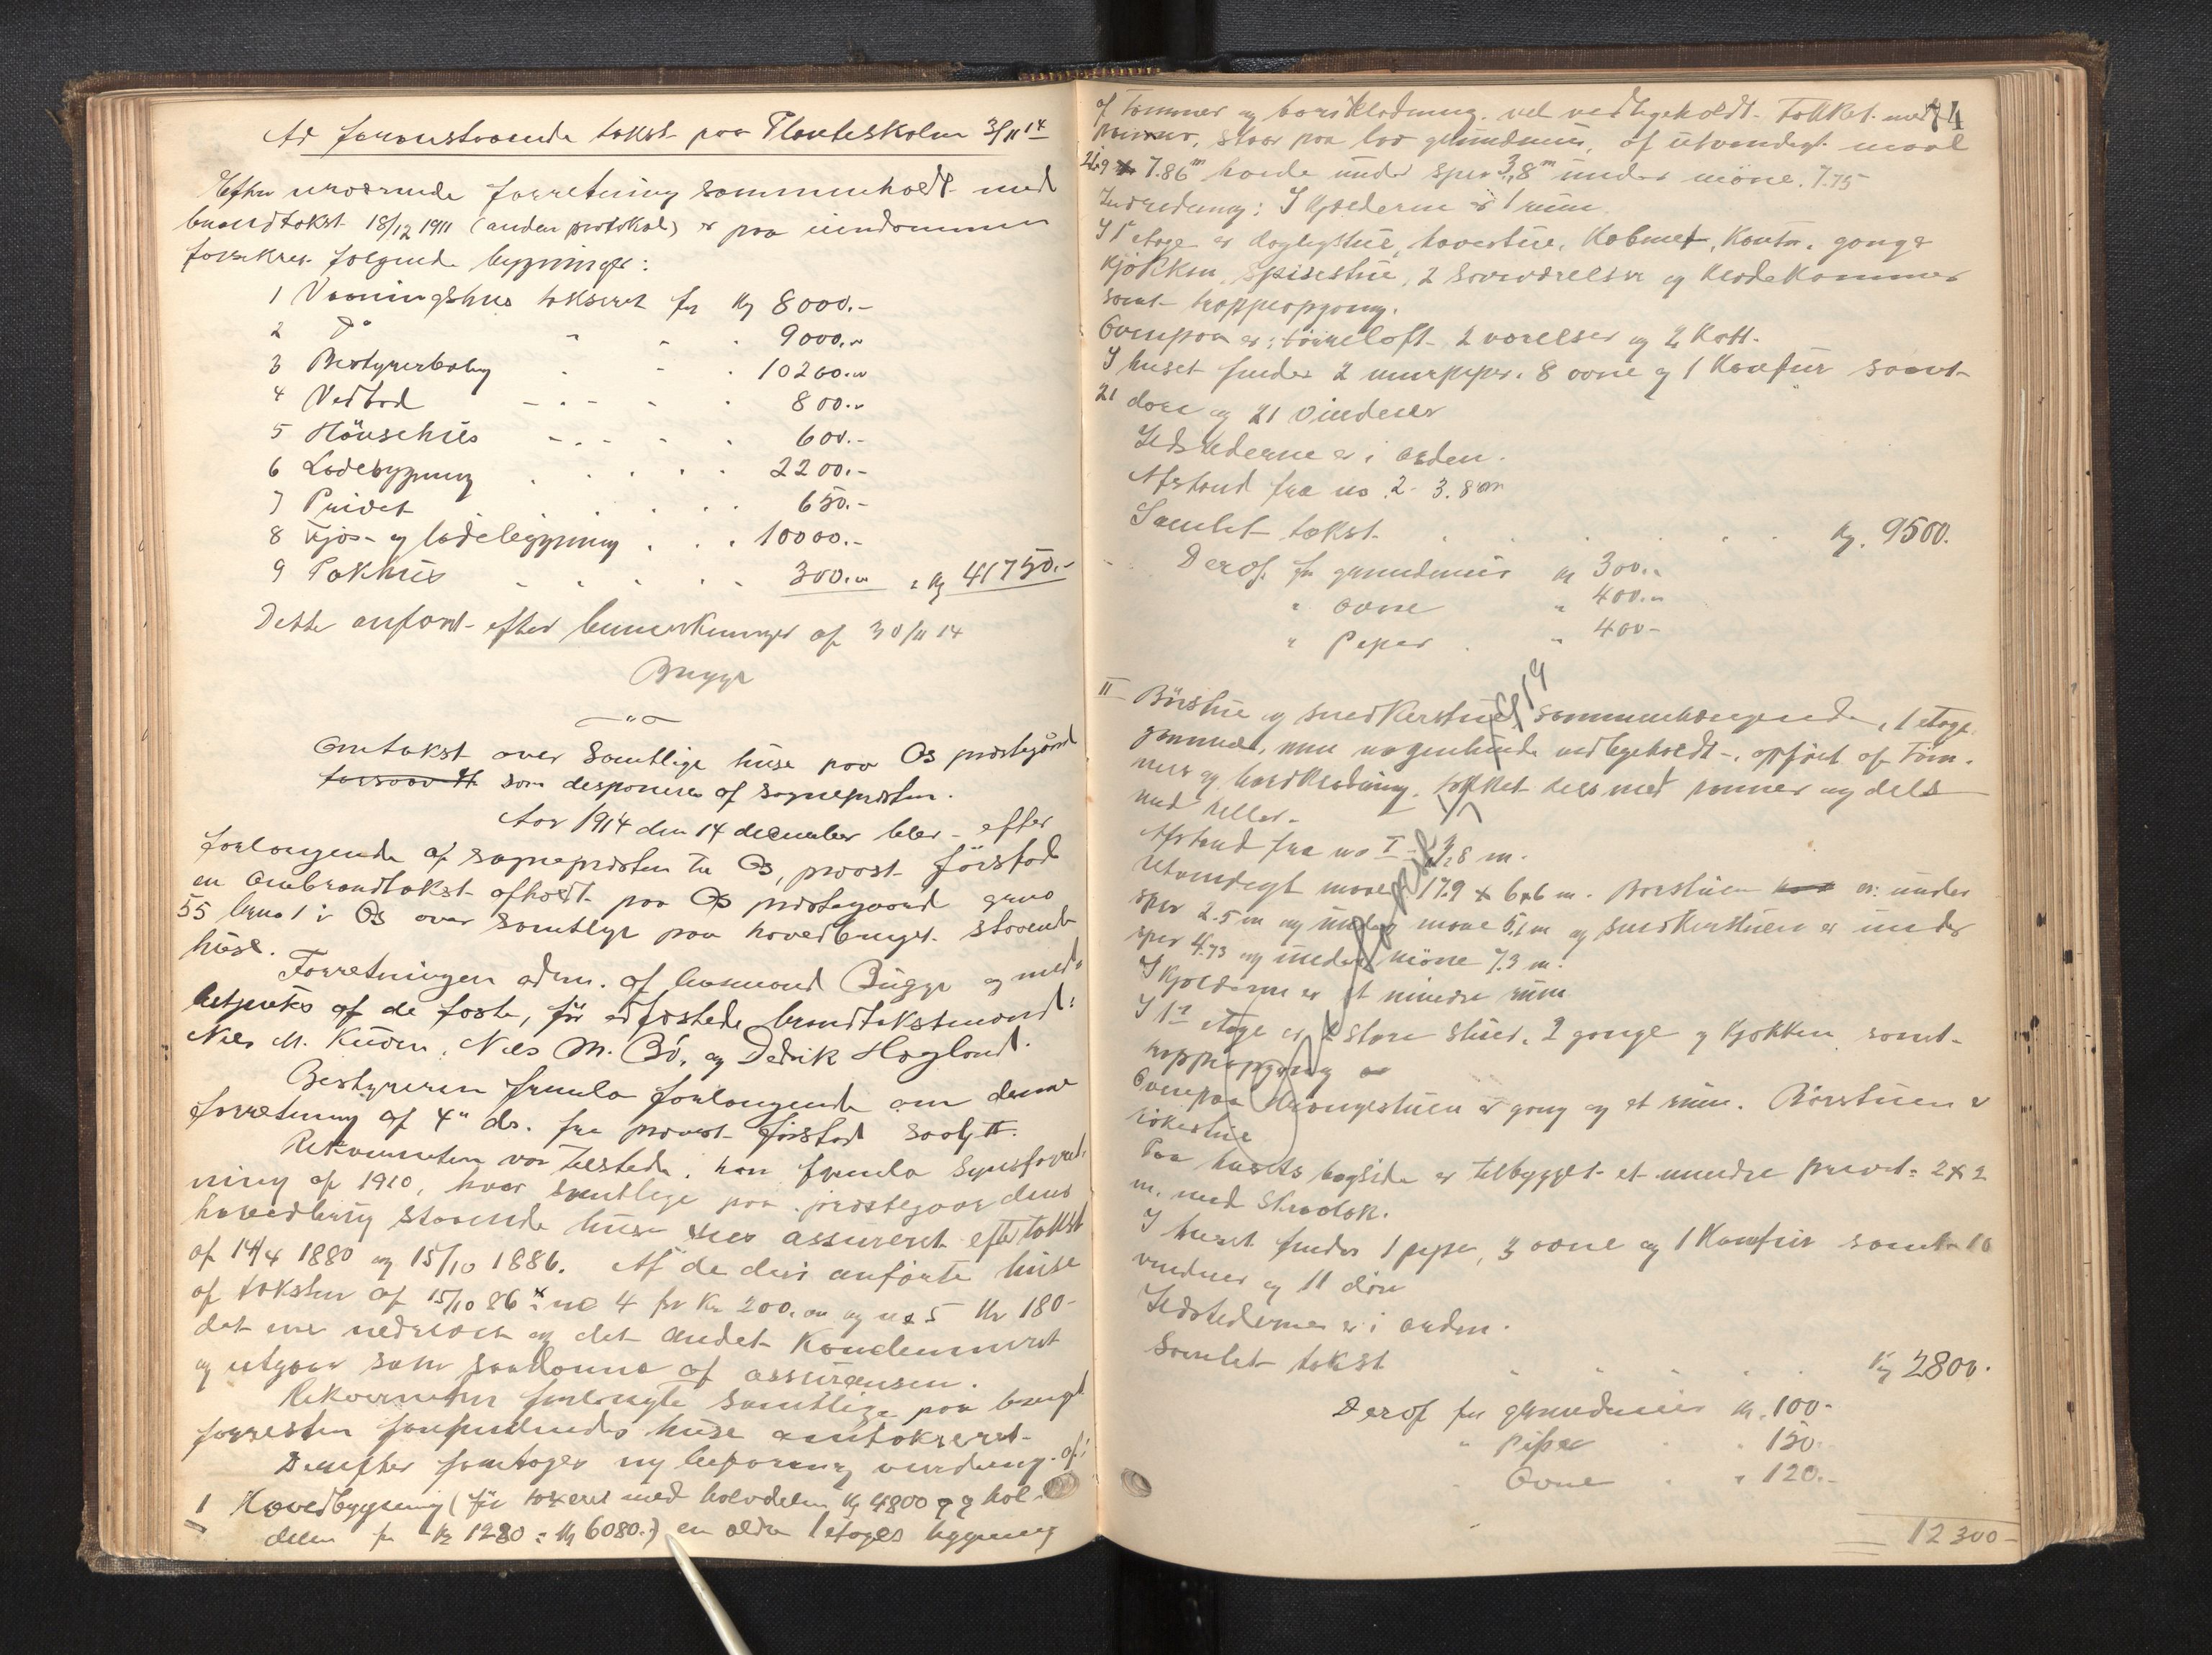 Ad foranstaaende takst paa Planteskolen 3/11 14
Efter nærværende forretning sammenholdt med
brandtakst 18/12 1911 (anden protokol) er paa eiendommen
forsikret følgende bygninger:
1 Vaaningshus takseret for Kr 8000.-
2 Do " " " 9000.-
3 Bestyrerbolig " " " 10200.-
4 Vedbod " " " 800.-
5 Hönsehus " " " 600.-
6 Ladebygning " " " 2200.-
7 Privet " " " 650.-
8 Fjøs- og ladebygning " " " 10000.-
9 Pakhus " " " 300.- = Kr 41750.-
Dette anført efter bemerkninger af 30/11 14
Bugge
Omtakst over samtlige huse paa Os prestegaard
forsaavidt som desponeres af sognepresten.
Aar 1914 den 14 december blev efter
forlangende af sognepresten til Os, provst Førstad
en ombrandtakst afholdt paa Os prestegaard gano
55 bruno 1 i Os over samtlige paa hovedbruget staaende
huse.
Forretningen adm. af lensmand Bugge og med-
betjentes af de faste, før edfæstede brandtakstmænd:
Nils M. Kuven, Nils M. Bö, og Dedrik Hegland.
Bestyreren fremla forlangende om denne
forretning af 4de ds. fra provst Førstad saalydt.
Rekvirenten var tilstede. han fremla synsforret-
ning af 1910, hvor samtlige paa prestegaardens
hovedbrug staaende huse sees assureret efter takst
af 14/4 1880 og 15/10 1886. Af de deri anførte huse
af taksten af 15/10 86 er no 4 for Kr. 200.00 og no 5 Kr 180-
det ene nedrevet og det andet kondemneret
og utgaar som saadanne af assuransen.
Rekvirenten forlangte samtlige paa bruget
forresten forefindendes huse omtakseret.
Derefter foretoges ny befaring vurdering af:
1 Hovedbygning (før takseret med halvdelen Kr 4800 og hal-
delen for Kr 1280 = Kr 6080.-) en ældre 1 etages bygning
74
af Tømmer og bordklædning. vel vedligeholdt. Takket med
panner, staar paa lav grundmur, af utvendigt maal
21.9 x 7.86 m høide under sper 3,8 m under møne. 7.75
Indredning: I Kjælderne er 1 rum
I 1ste etage er daglystue, havestue, Kabinet, Kontor, gange
Kjøkken, Spisestue, 2 soveværelser og Klædekammer
samt trappeopgang.
Ovenpaa er: tørreloft 2 værelser og 2 Kott.
I huset findes 2 murpiper. 8 ovne og 1 Komfur samt
21 døre og 21 vinduer
Ildstederne er i orden.
Afstand fra no 2 - 3.8 m
Samlet takst. Kr. 9500.
Deraf for grundmur Kr 300.-
" ovne " 400.-
" Piper " 400-
II Børstue og snedkerstue sammenhængende, 1 etage
gammel, men nogenlunde vedligeholdt, opført af Tøm-
mer og bordklædning. takket dels med panner og dels
med heller.
Afstand fra no I - 3,8 m.
Utvendigt maal 17.9 x 6,6 m. Borstuen er: under
sper 2.5 m og under møne 5,1 m og snedkerstuen er under
sper 4.73 og under møne 7.3 m.
I Kjælderen er et mindre rum
I 1ste etage er 2 store stuer, 2 gange og Kjøkken samt
trappeopgang
Ovenpaa drengestuen er gang og et rum. Børstuen er
røkestue
Paa husets bagside er tilbygget et mindre privet = 2 x 2
m. med skraatak.
I huset findes 1 pipe, 3 ovne og 1 Komfur samt 10
vinduer og 11 døre
Ildstederne er i orden.
Samlet takst Kr 2800.
Deraf for grundmur Kr. 100-
" Piper " 150.-
" Ovne " 120.-
12300-